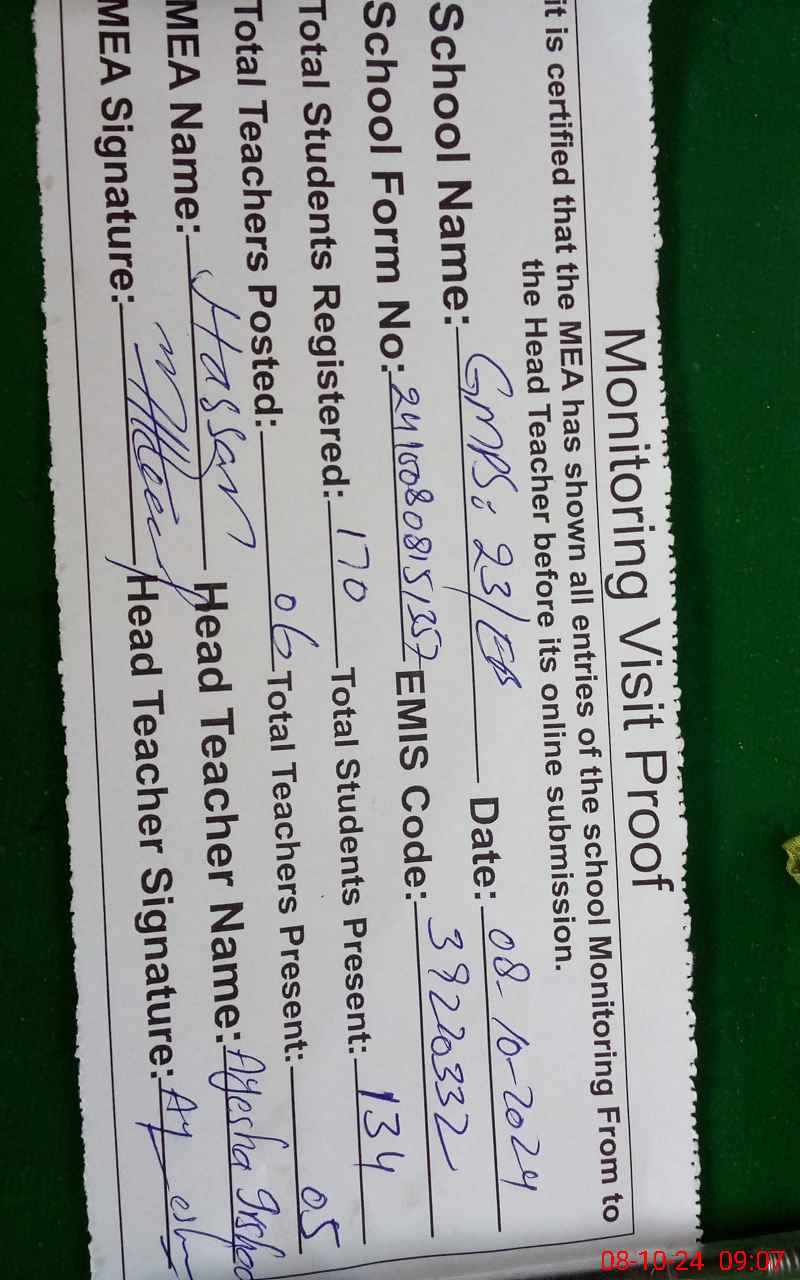 Monitoring Visit Proof
it is certified that the MEA has shown all entries of the school Monitoring From to
the Head Teacher before its online submission.
School Name: GMPS: 23/EB Date: 08-10-2024
School Form No: 24100808151357 EMIS Code: 39220332
Total Students Registered: 170 Total Students Present: 134
Total Teachers Posted: 06 Total Teachers Present: 05
MEA Name: Hassan Head Teacher Name: Ayesha Irshad
MEA Signature: Head Teacher Signature:
08-10-24 09:07